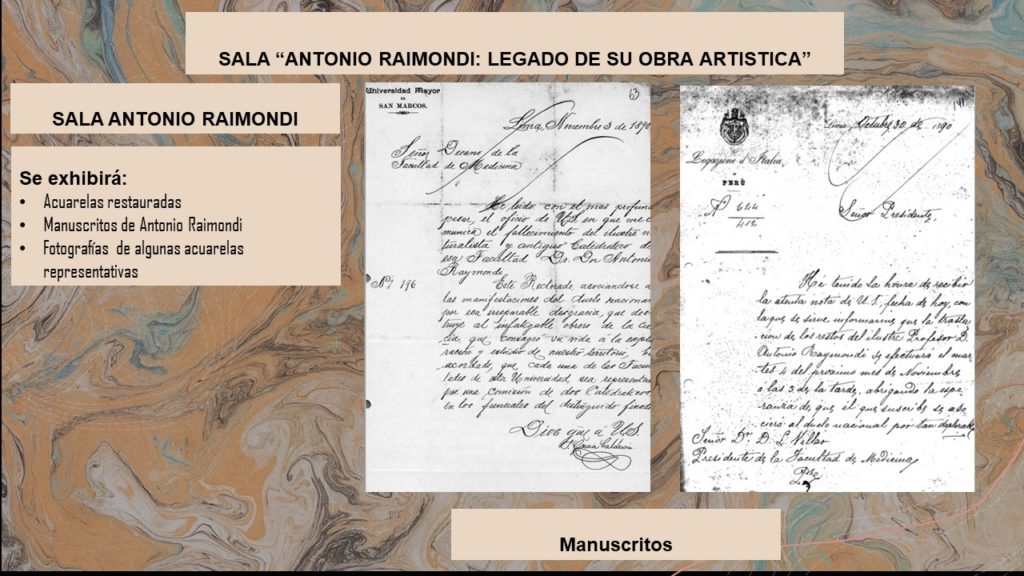 SALA “ANTONIO RAIMONDI: LEGADO DE SU OBRA ARTISTICA”
SALA ANTONIO RAIMONDI
Se exhibirá:
• Acuarelas restauradas
• Manuscritos de Antonio Raimondi
• Fotografías de algunas acuarelas
representativas
Universidad Mayor
DE
SAN MARCOS.
63
Lima, Noviembre 3 de 1890
Señor Decano de la
Facultad de Medicina
He leido con el mas profun
pesar, el oficio de US en que me
munica el fallecimiento del ilustre
turalista y antiguo Catedratico de
esa Facultad Dr. Don Antonio
Raymondi.
Nº 196
Este Rectorado, asociandose a
las manifestaciones del duelo nacional
por esa irreparable desgracia, que
al infatigable obrero de la
cia, que consagró su vida a la
racion y estudio de nuestro territorio, h
acordado, que cada una de las Facul
tades de esta Universidad, sea representa
por una comision de dos Catedraticos
en los funerales del distinguido finado
Dios gue a US
Lima, Octubre 30 de 1890
Legazione d'Italia
PERÚ
Nº 644
412
Señor Presidente
He tenido la honra de recibir
la atenta nota de U.S, fecha de hoy, con
la que se sirve informarme que la trasla
cion de los restos del ilustre Profesor D.
Antonio Raymondi se efectuará el mar
tes 4 del próximo mes de Noviembre
á las 3 de la tarde, abrigando la espe
ranza de que el que suscribe se aso
ciará al duelo nacional por tan
Señor Dr. D. L. Villar
Presidente de la Facultad de Medicina
Manuscritos